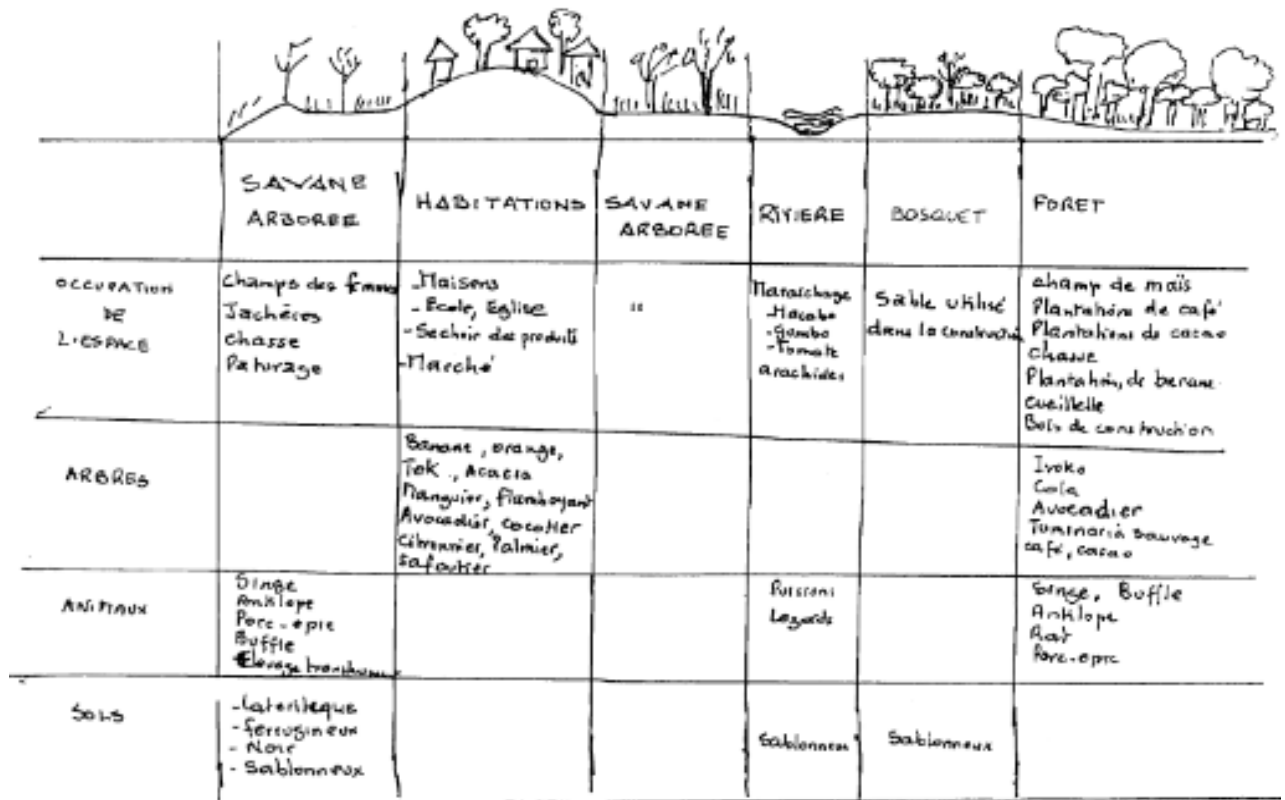 SAVANE
ARBOREE
HABITATIONS
SAVANE
ARBOREE
RIVIERE
BOSQUET
FORET
OCCUPATION
DE
L'ESPACE
Champs des femmes
Jachères
chasse
Paturage
-Maisons
- Ecole, Eglise
- Sechoir des produits
-Marché
"
Maraichage
- Macabo
- gombo
- Tomate
arachides
Sable utilisé
dans la construction
champ de maïs
Plantations de café
Plantations de cacao
chasse
Plantation, de banane
cueillette
Bois de construction
ARBRES
Banane, orange,
Tek, Acacia
Manguier, Flamboyant
Avocadier, cocotier
citronnier, Palmier,
safoutier
Iroko
Cola
Avocadier
sauvage
café, cacao
ANIMAUX
Singe
Antilope
Porc-epic
Buffle
Elevage
Poissons
Lezards
Singe, Buffle
Antilope
Rat
Porc-epic
SOLS
- Lateritique
- ferrugineux
- Noir
- Sablonneux
Sablonneux
Sablonneux